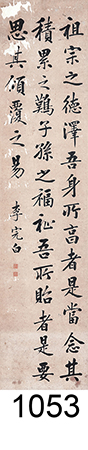 祖宗之德澤吾身所享者是當念其
積累之難子孫之福祉吾所貽者是要
思其傾覆之易
李完白
1053